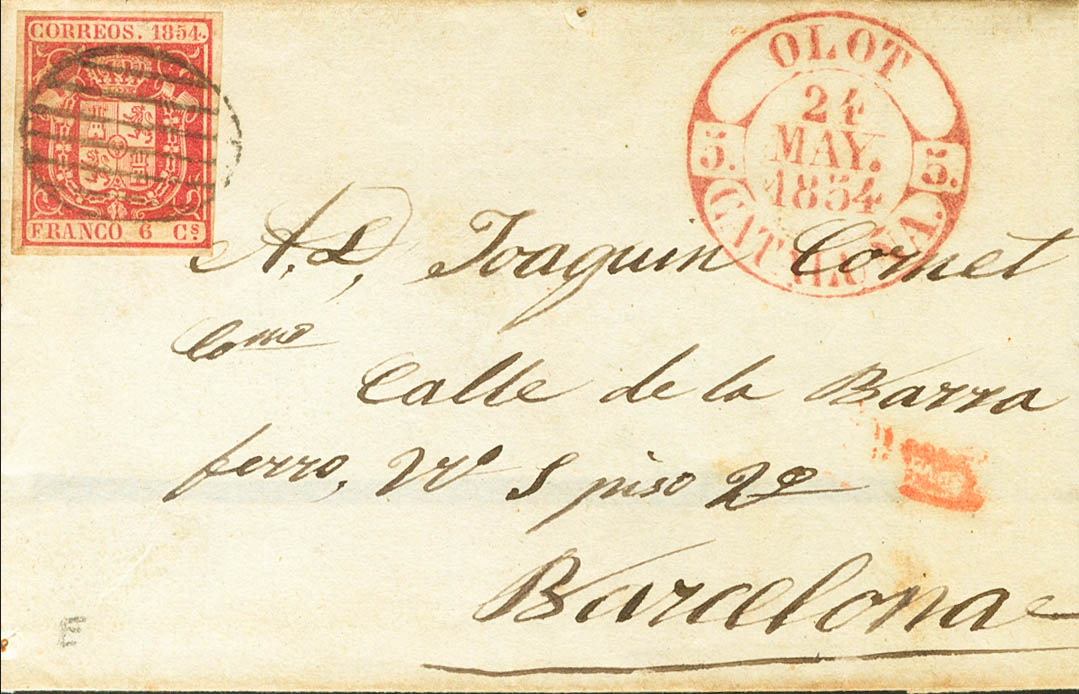 CORREOS. 1854.
FRANCO 6 Cs.
OLOT
24
MAY.
1854
5. 5.
CATALUNA.
A. D, Joaquin Cornet
Como
Calle de la Barra
ferro, Nº 5 piso 2º
Barcelona
E